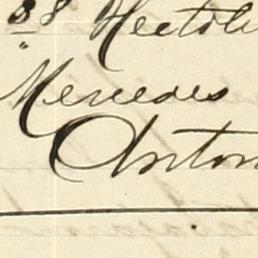 38 Hectoli
Mercedes
Anton